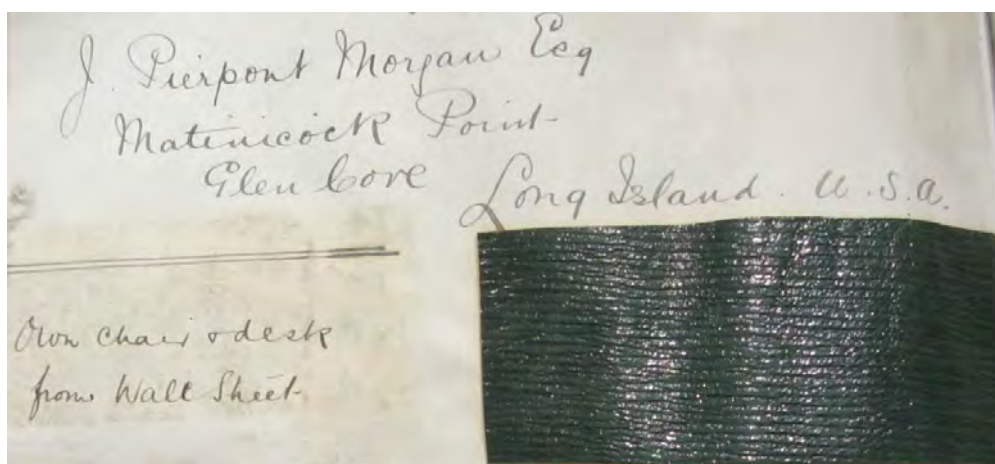 J. Pierpont Morgan Esq
Matinicock Point
Glen Cove
Long Island. U.S.A.
Own chair & desk
from Wall Street